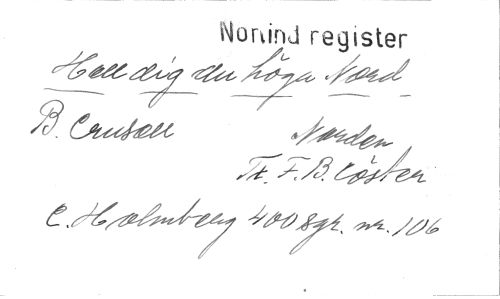 Nonind register
Hell dig du höga Nord
B. Crusell
Norden
Tx. F. B. Cöster
C. Holmberg 400 sgr. nr. 106